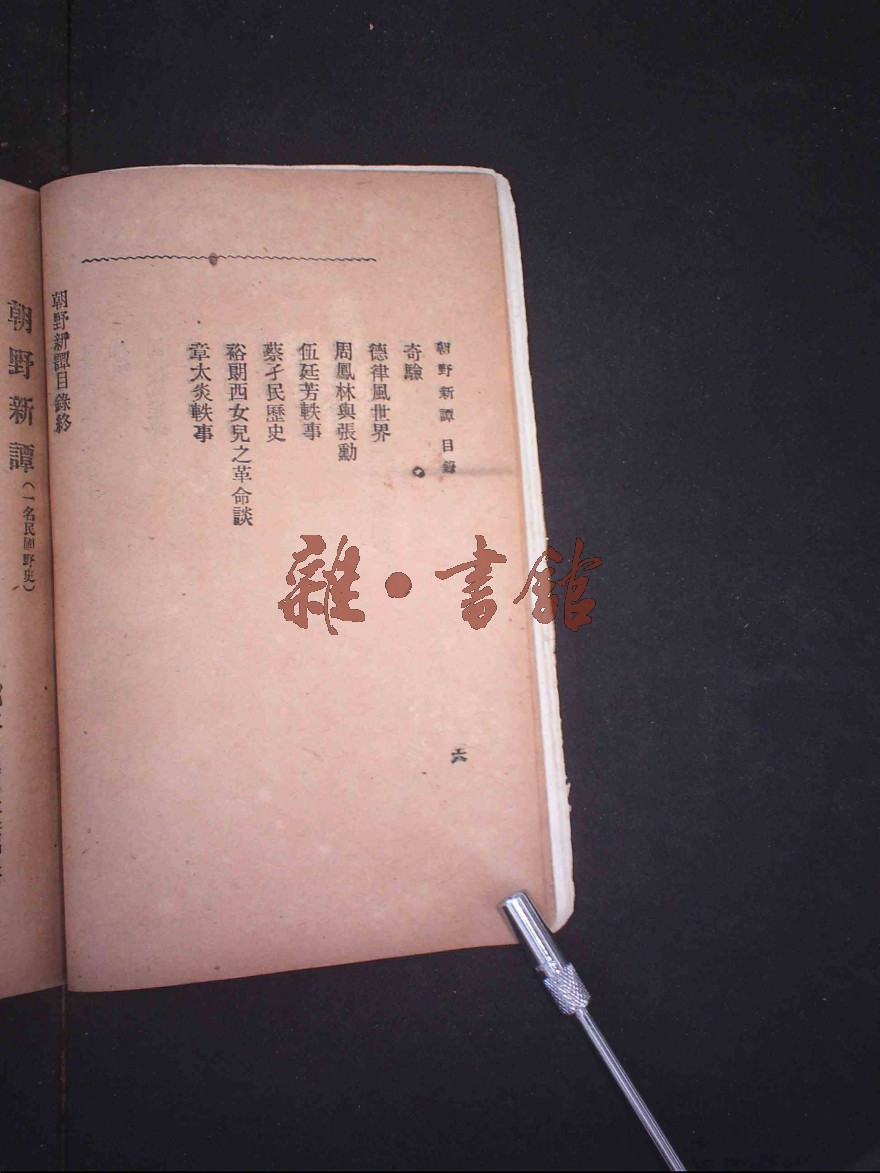 朝野新譚 目錄
奇驗
德律風世界
周鳳林與張勳
伍廷芳軼事
蔡孑民歷史
裕朗西女兒之革命談
章太炎軼事
六
朝野新譚目錄終
朝野新譚(一名民國野史)
雜·書館